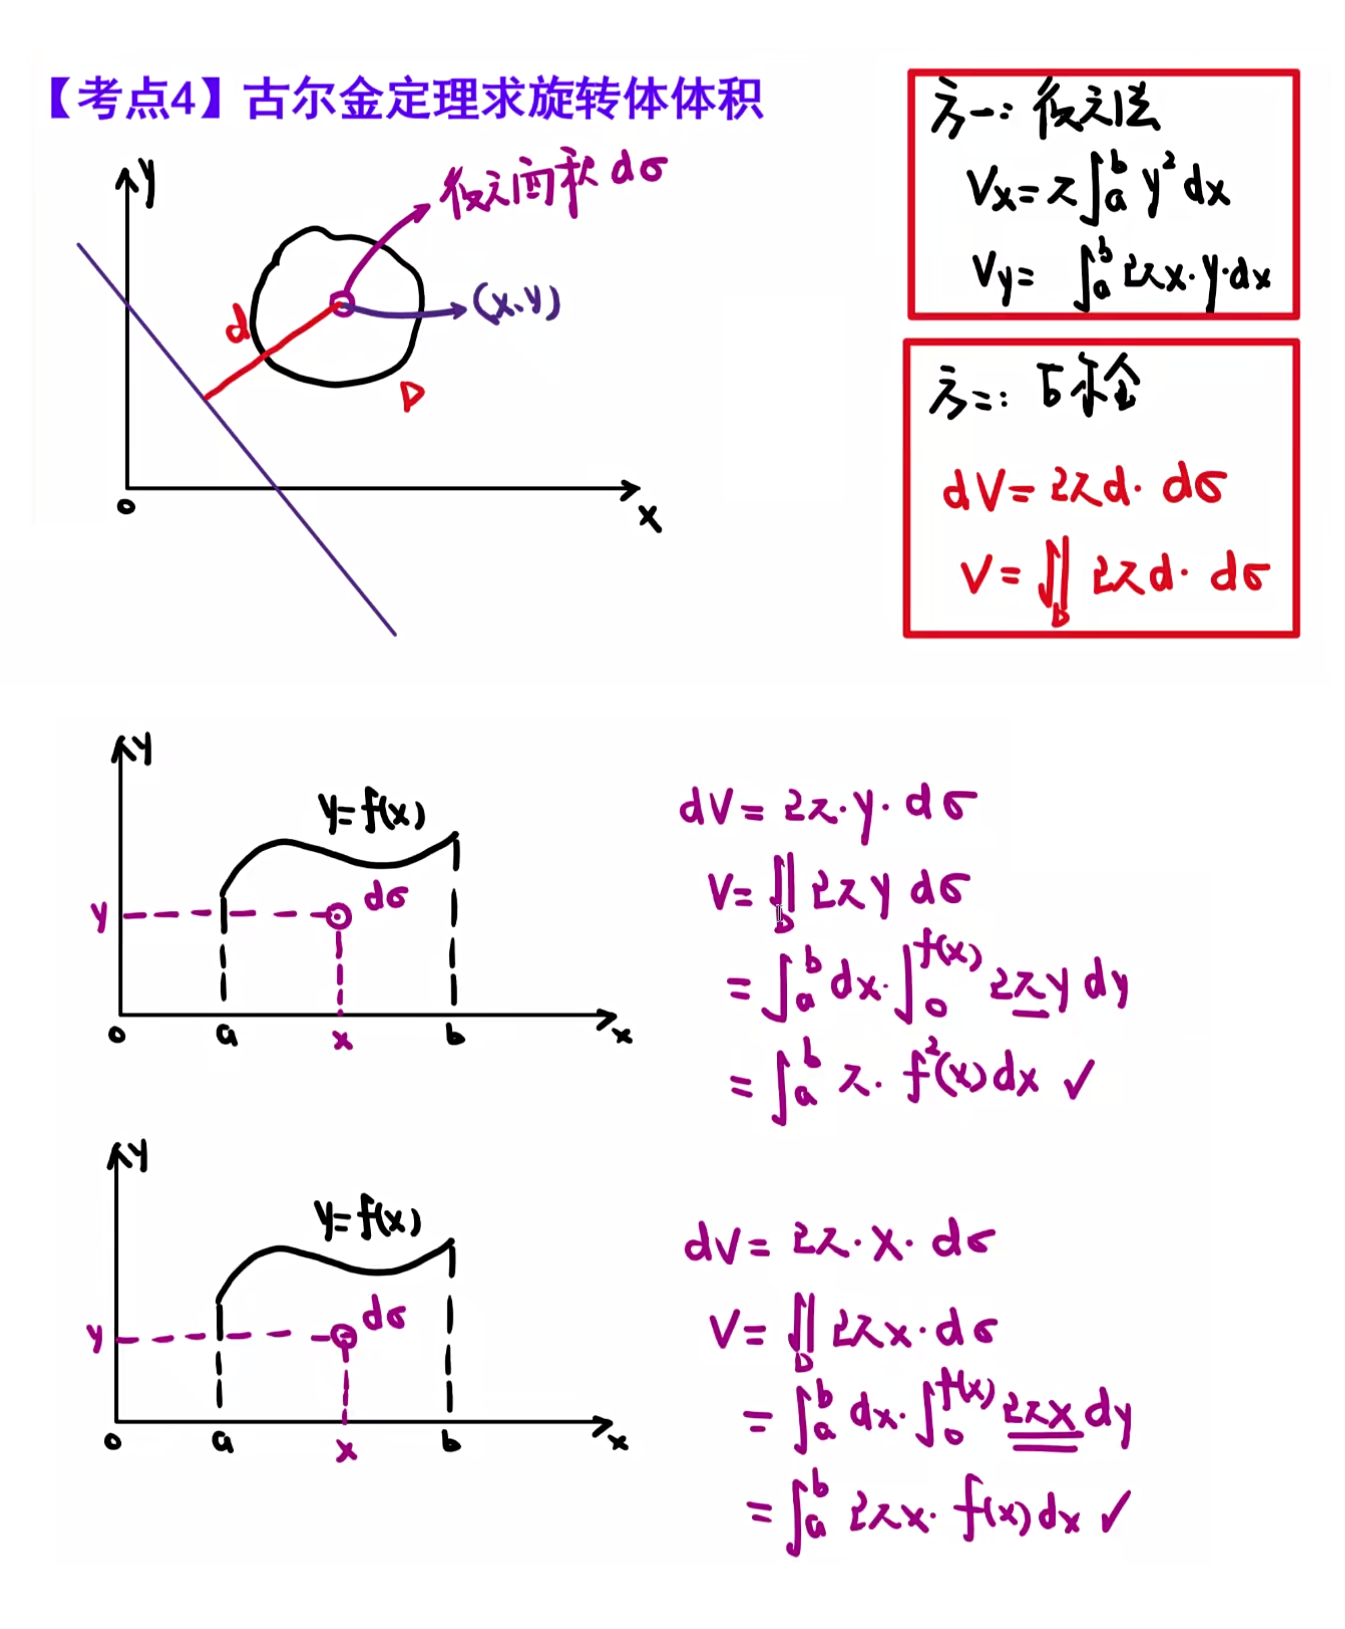 【考点4】古尔金定理求旋转体体积
y
微元面积 dσ
(x,y)
d
D
o
x
方一：微元法
Vx=π∫_a^b y²dx
Vy= ∫_a^b 2πx·y·dx
方二：古尔金
dV=2πd·dσ
V=∬_D 2πd·dσ
y
y=f(x)
dσ
y
o
a
x
b
x
dV=2π·y·dσ
V=∬_D 2πy dσ
=∫_a^b dx·∫_0^f(x) 2πy dy
=∫_a^b π·f²(x)dx ✓
y
y=f(x)
dσ
y
o
a
x
b
x
dV=2π·x·dσ
V=∬_D 2πx·dσ
=∫_a^b dx·∫_0^f(x) 2πx dy
=∫_a^b 2πx·f(x)dx ✓